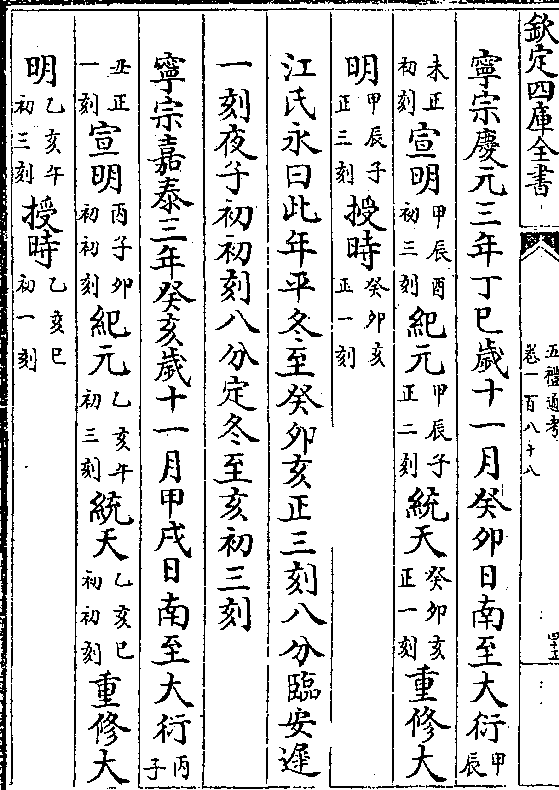 欽定四庫全書
五禮通考
卷一百八十八
四十五
寧宗慶元三年丁巳歲十一月癸卯日南至大衍甲辰
未正初刻宣明甲辰酉初三刻紀元甲辰子正二刻統天癸卯亥正一刻重修大
明甲辰子正三刻授時癸卯亥正一刻
江氏永曰此年平冬至癸卯亥正三刻八分臨安遲
一刻夜子初初刻八分定冬至亥初三刻
寧宗嘉泰三年癸亥歲十一月甲戌日南至大衍丙子
丑正一刻宣明丙子卯初初刻紀元乙亥午初三刻統天乙亥巳初初刻重修大
明乙亥午初三刻授時乙亥巳初一刻